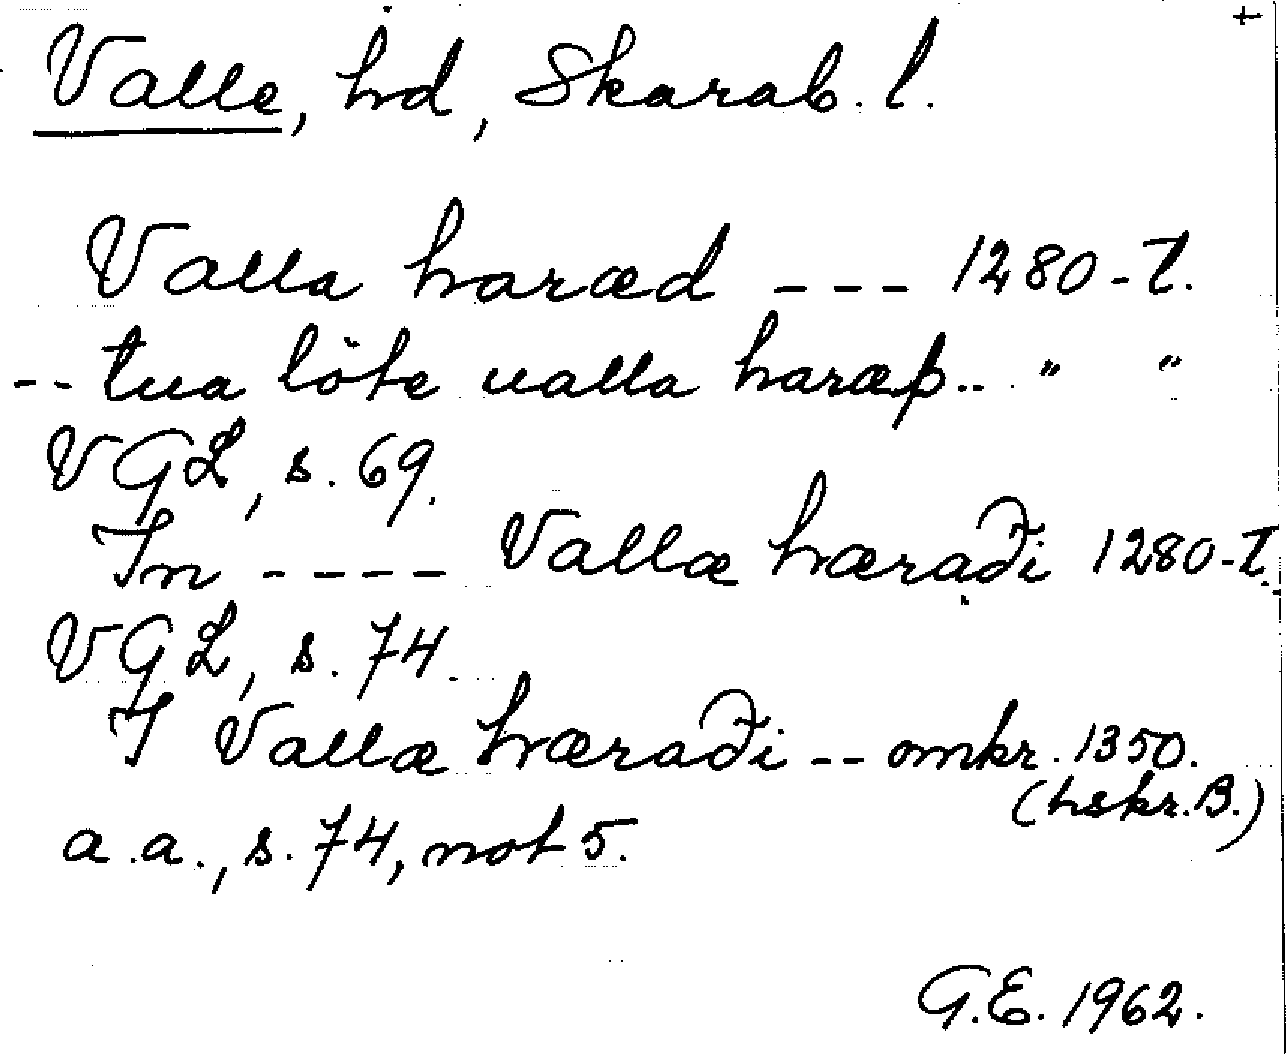 +
Valle, hd, Skarab. l.
Valla haræd --- 1280-t.
-- tua löte ualla haræþ.. " "
VGL, s. 69.
In ---- Vallæ hæraði 1280-t.
VGL, s. 74.
I Vallæ hæraði -- omkr. 1350.
(hskr. B.)
a.a., s. 74, not 5.
G.E. 1962.